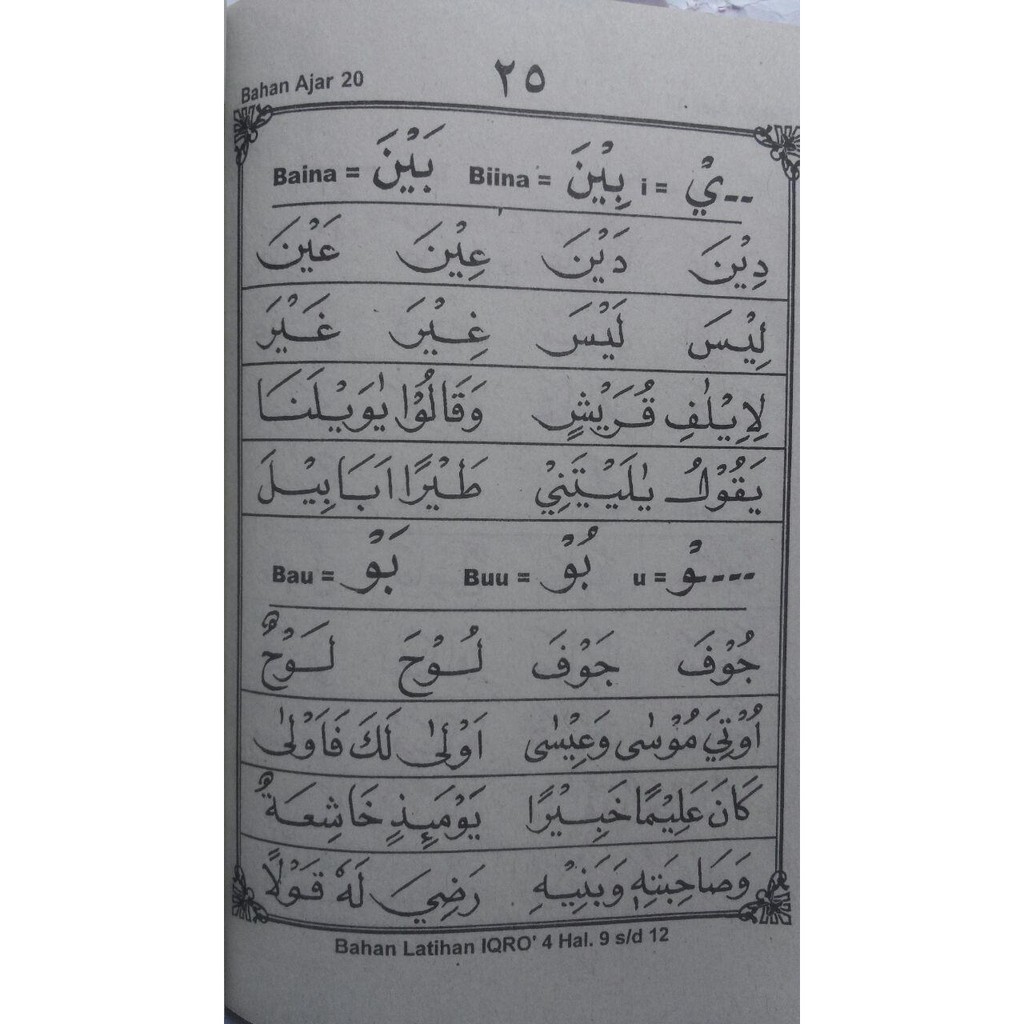 Bahan Ajar 20
٢٥
--يْ = i بِيْنَ = Biina بَيْنَ = Baina
دِيْنَ دَيْنَ عِيْنَ عَيْنَ
لِيْسَ لَيْسَ غِيْرَ غَيْرَ
لِاِيْلٰفِ قُرَيْشٍ وَقَالُوْا يٰوَيْلَنَا
يَقُوْلُ يٰلَيْتَنِيْ طَيْرًا اَبَابِيْلَ
---وْ = u بُوْ = Buu بَوْ = Bau
جُوْفَ جَوْفَ لُوْحَ لَوْحٌ
اُوْتِيَ مُوْسٰى وَعِيْسٰى اَوْلٰى لَكَ فَاَوْلٰى
كَانَ عَلِيْمًا خَبِيْرًا يَوْمَئِذٍ خَاشِعَةٌ
وَصَاحِبَتِهٖ وَبَنِيْهِ رَضِيَ لَهٗ قَوْلًا
Bahan Latihan IQRO' 4 Hal. 9 s/d 12